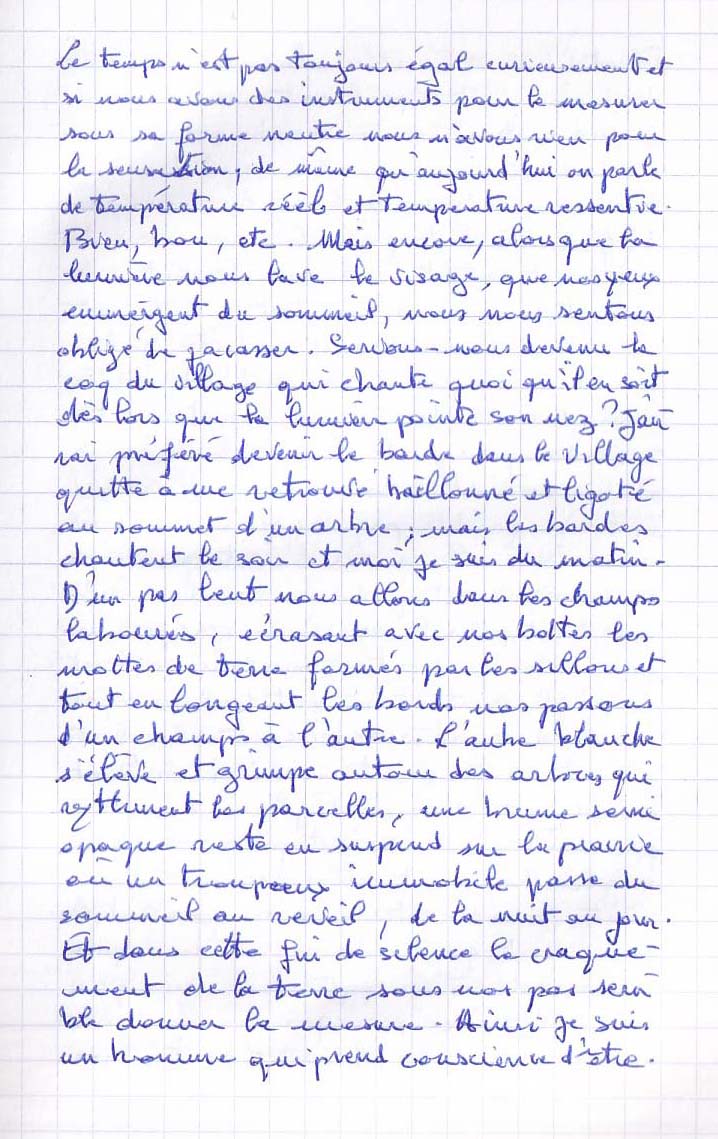 Le temps n'est pas toujours égal curieusement et
si nous avons des instruments pour le mesurer
sous sa forme neutre nous n'avons rien pour
la sensation, de même qu'aujourd'hui on parle
de température réèle et temperature ressentie.
Bien, bon, etc. Mais encore, alors que la
lumière nous lave le visage, que nos yeux
emmergent du sommeil, nous nous sentons
obligé de jacasser. Serions-nous devenu le
coq du village qui chante quoi qu'il en soit
dès lors que la lumière pointe son nez? J'au
rai préféré devenir le barde dans le village
quitte à me retrouvé baillonné et ligotté
au sommet d'un arbre; mais les bardes
chantent le soir et moi je suis du matin.
D'un pas lent nous allons dans les champs
labourés, écrasant avec nos bottes les
mottes de terre formés par les sillons et
tout en longeant les bords nos passons
d'un champs à l'autre. L'aube blanche
s'élève et grimpe autour des arbres qui
rythment les parcelles, une brume semi
opaque reste en suspend sur la prairie
où un troupeau immobile passe du
sommeil au réveil, de la nuit au jour.
Et dans cette fin de silence le craque-
ment de la terre sous nos pas sem
ble donner la mesure. Ainsi je suis
un homme qui prend conscience d'être.